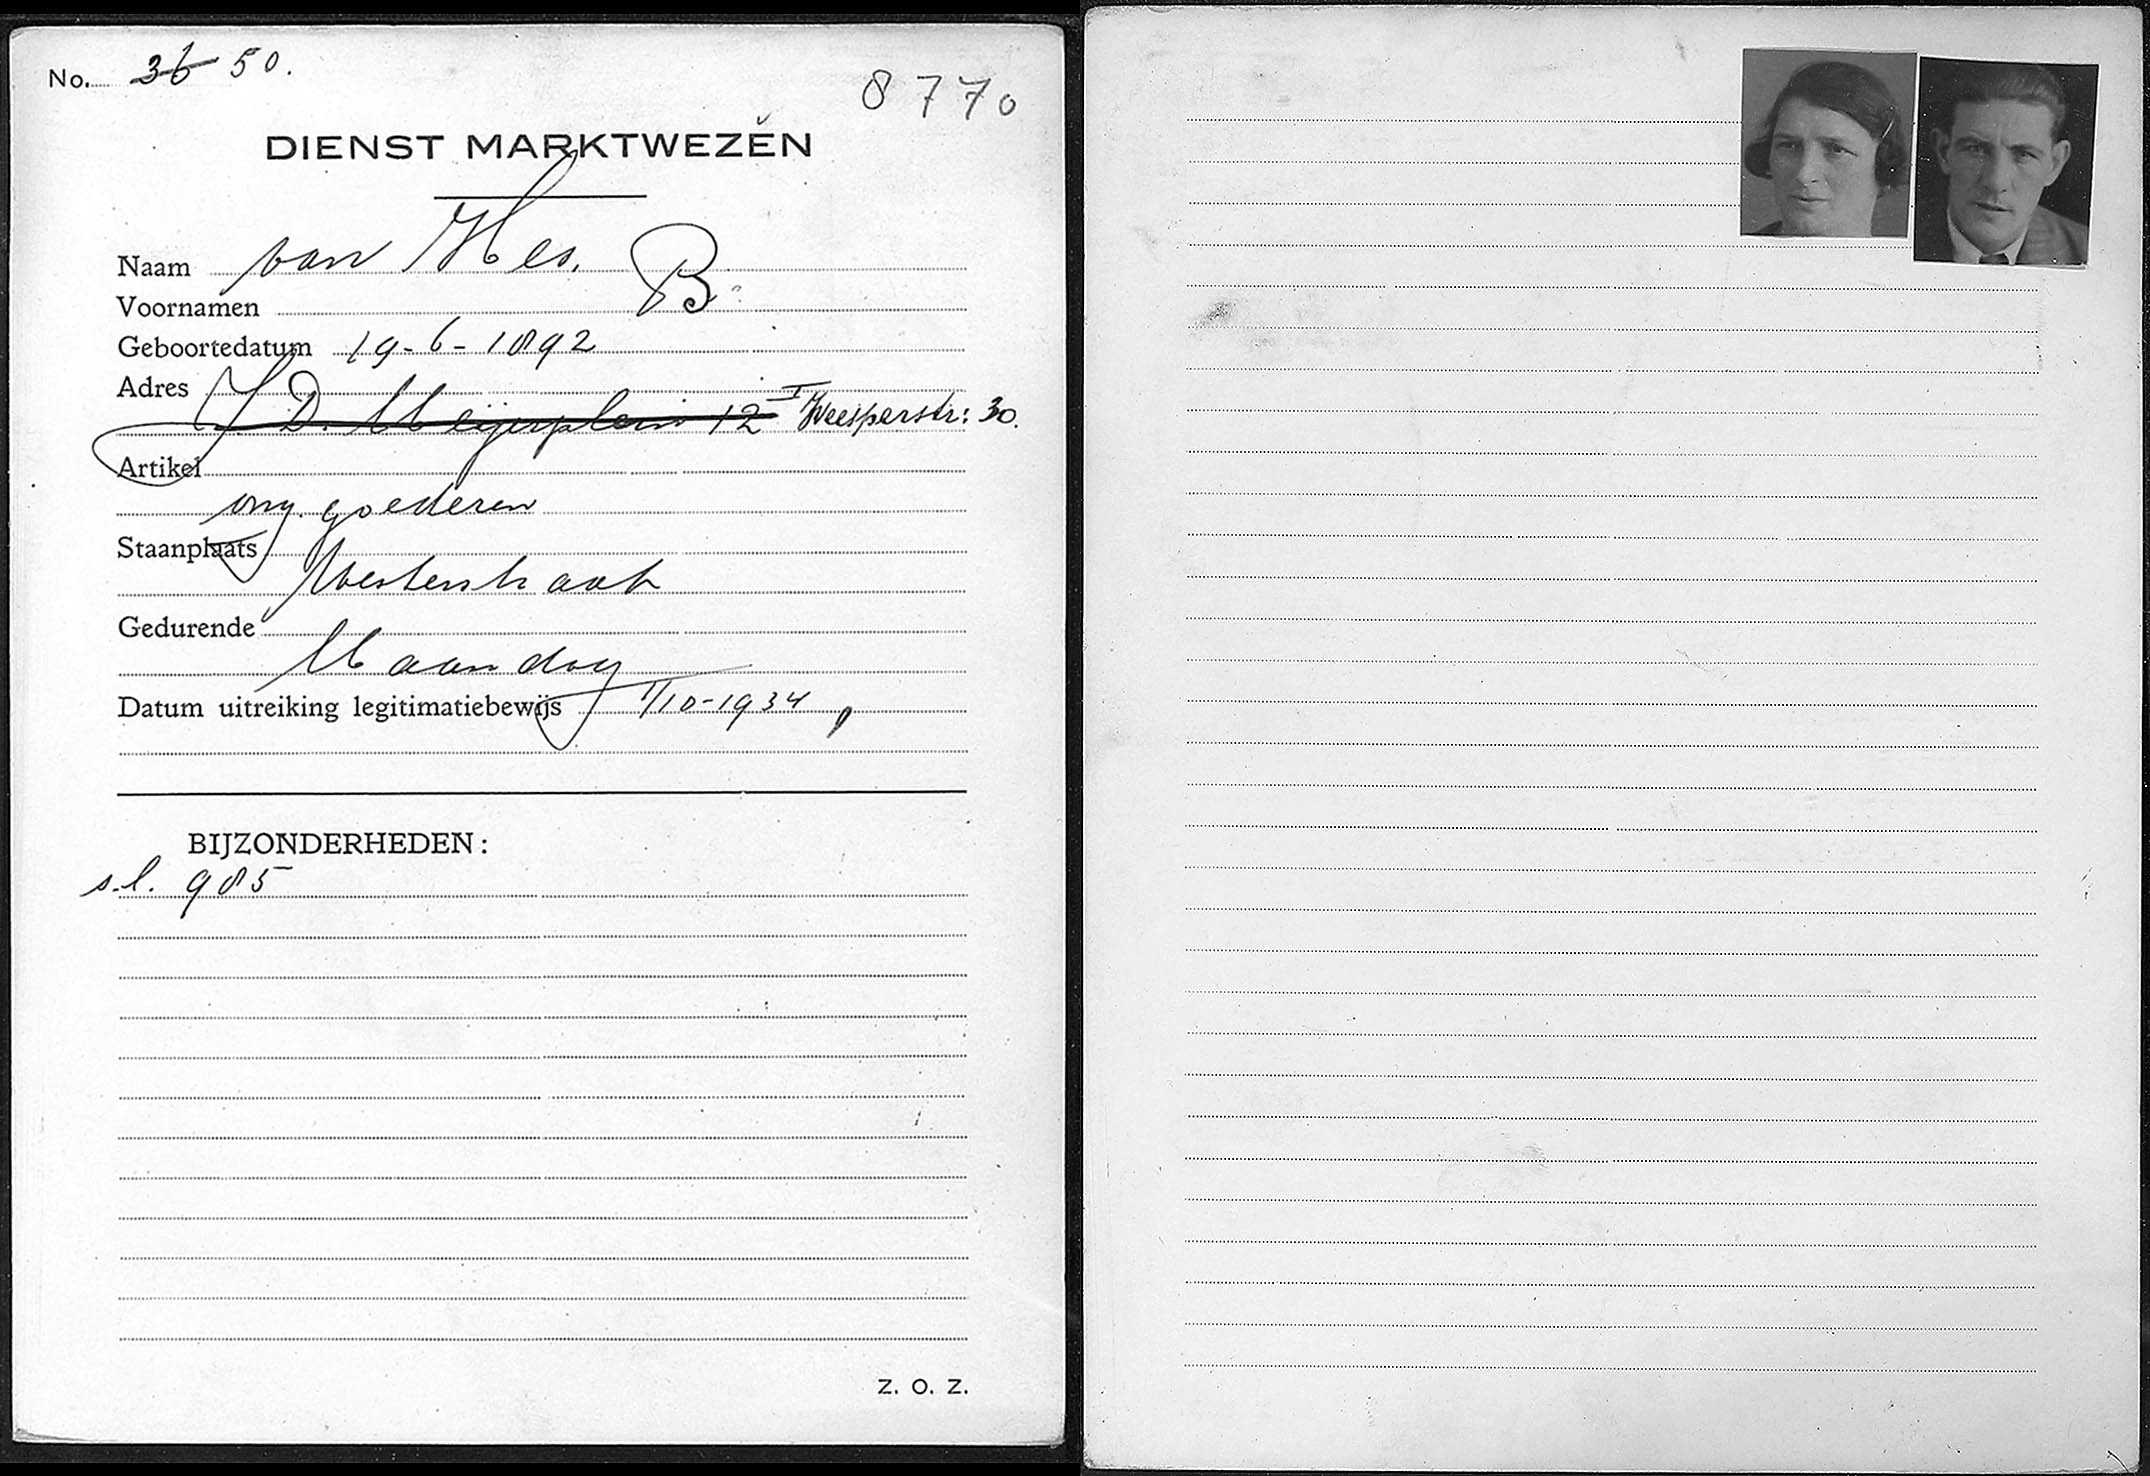 No. 36 50.
8770
DIENST MARKTWEZEN
Naam van Hes. B.
Voornamen
Geboortedatum 19-6-1892
Adres
J. D. Meijerplein 12 I Weesperstr: 30.
Artikel
ong. goederen
Staanplaats
Westerstraat
Gedurende
Maandag
Datum uitreiking legitimatiebewijs 1/10-1934
BIJZONDERHEDEN:
s.l. 985
Z. O. Z.